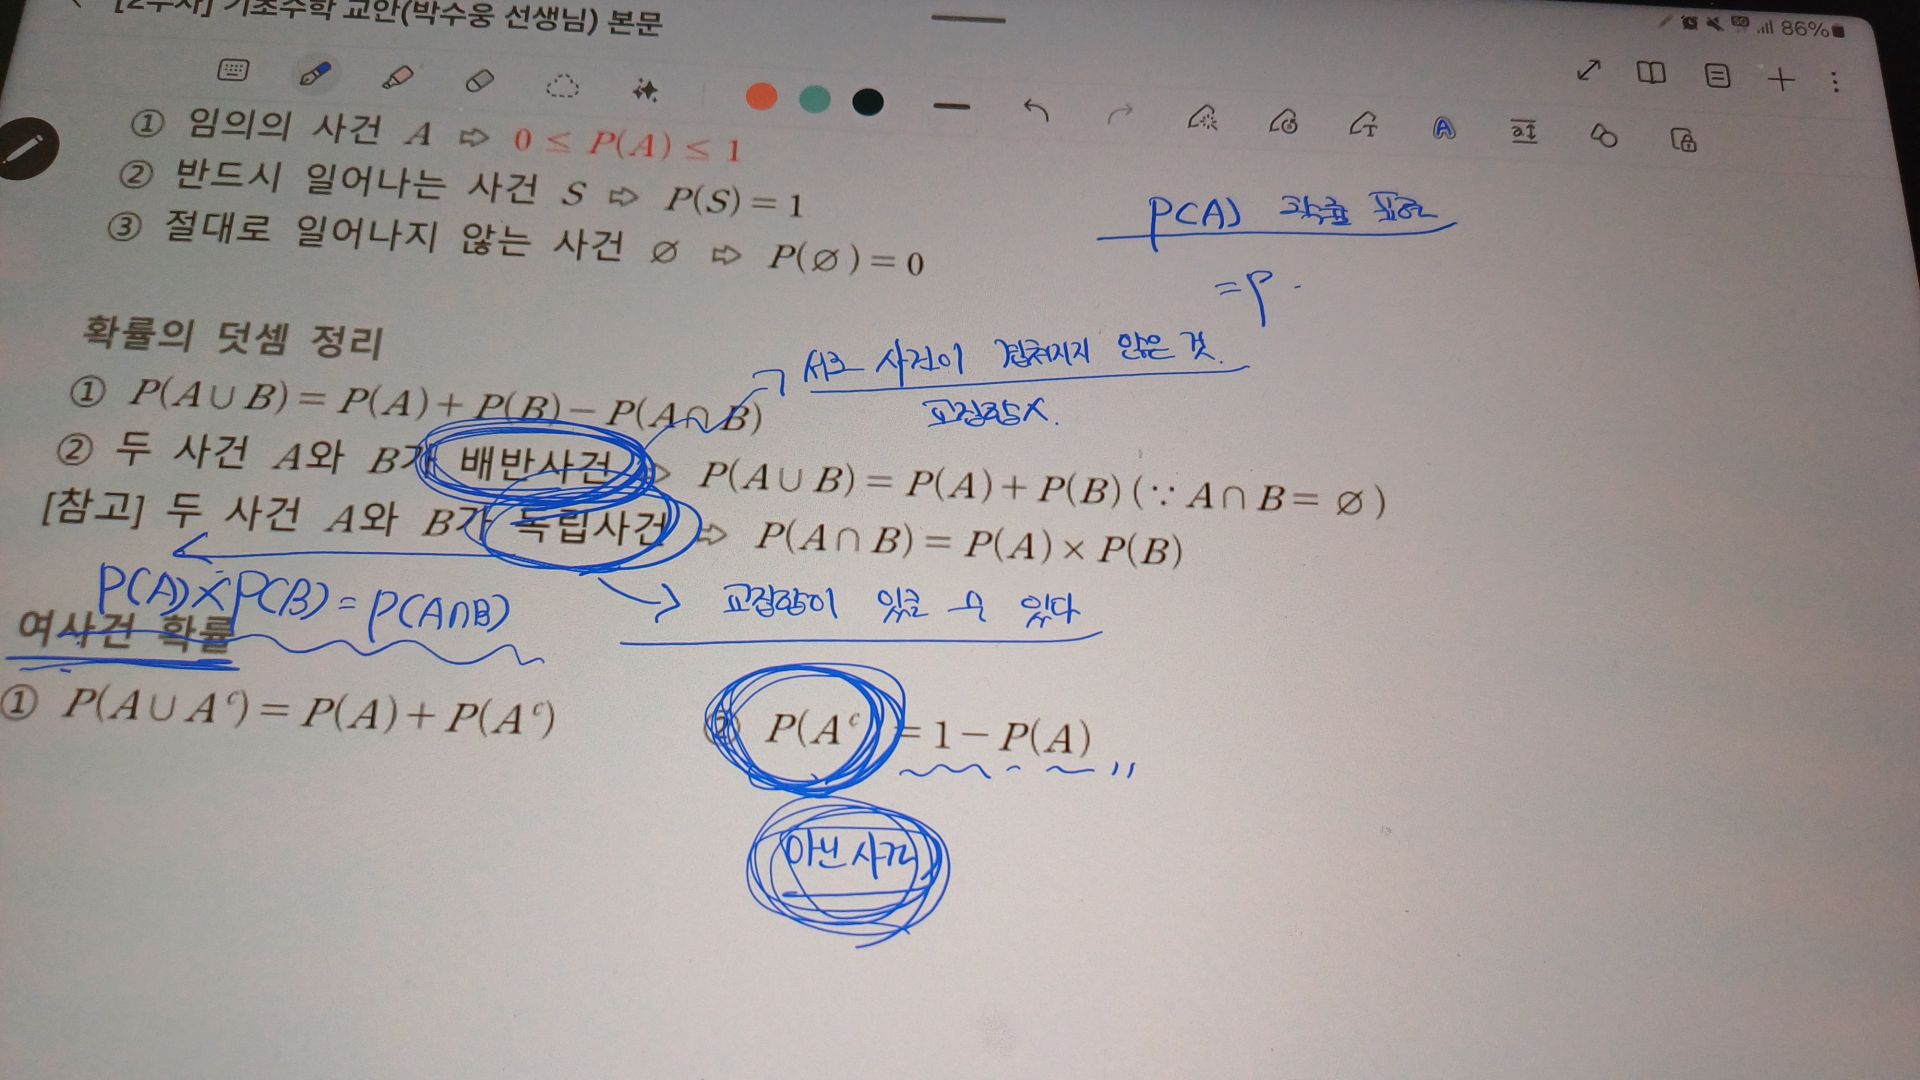 [2주차] 기초수학 교안(박수웅 선생님) 본문
86%
① 임의의 사건 A ⇨ 0 ≤ P(A) ≤ 1
② 반드시 일어나는 사건 S ⇨ P(S) = 1
③ 절대로 일어나지 않는 사건 ∅ ⇨ P(∅) = 0
P(A) 확률 표현
= P
확률의 덧셈 정리
서로 사건이 겹쳐지지 않은 것.
교집합X.
① P(A∪B) = P(A) + P(B) − P(A∩B)
② 두 사건 A와 B가 배반사건 ⇨ P(A∪B) = P(A) + P(B) (∵ A∩B = ∅)
[참고] 두 사건 A와 B가 독립사건 ⇨ P(A∩B) = P(A) × P(B)
P(A)×P(B) = P(A∩B)
→ 교집합이 있을 수 있다
여사건 확률
① P(A∪Aᶜ) = P(A) + P(Aᶜ)
② P(Aᶜ) = 1 − P(A)
아닌 사건